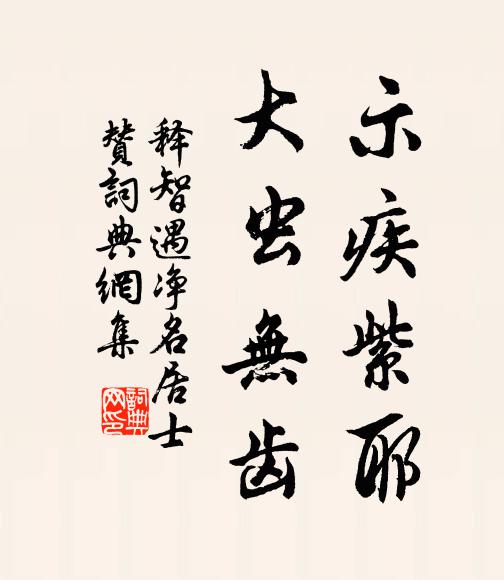 示疾紫耶
大虫無齿
释智遇净名居士
赞詞典網集
詞典
网印